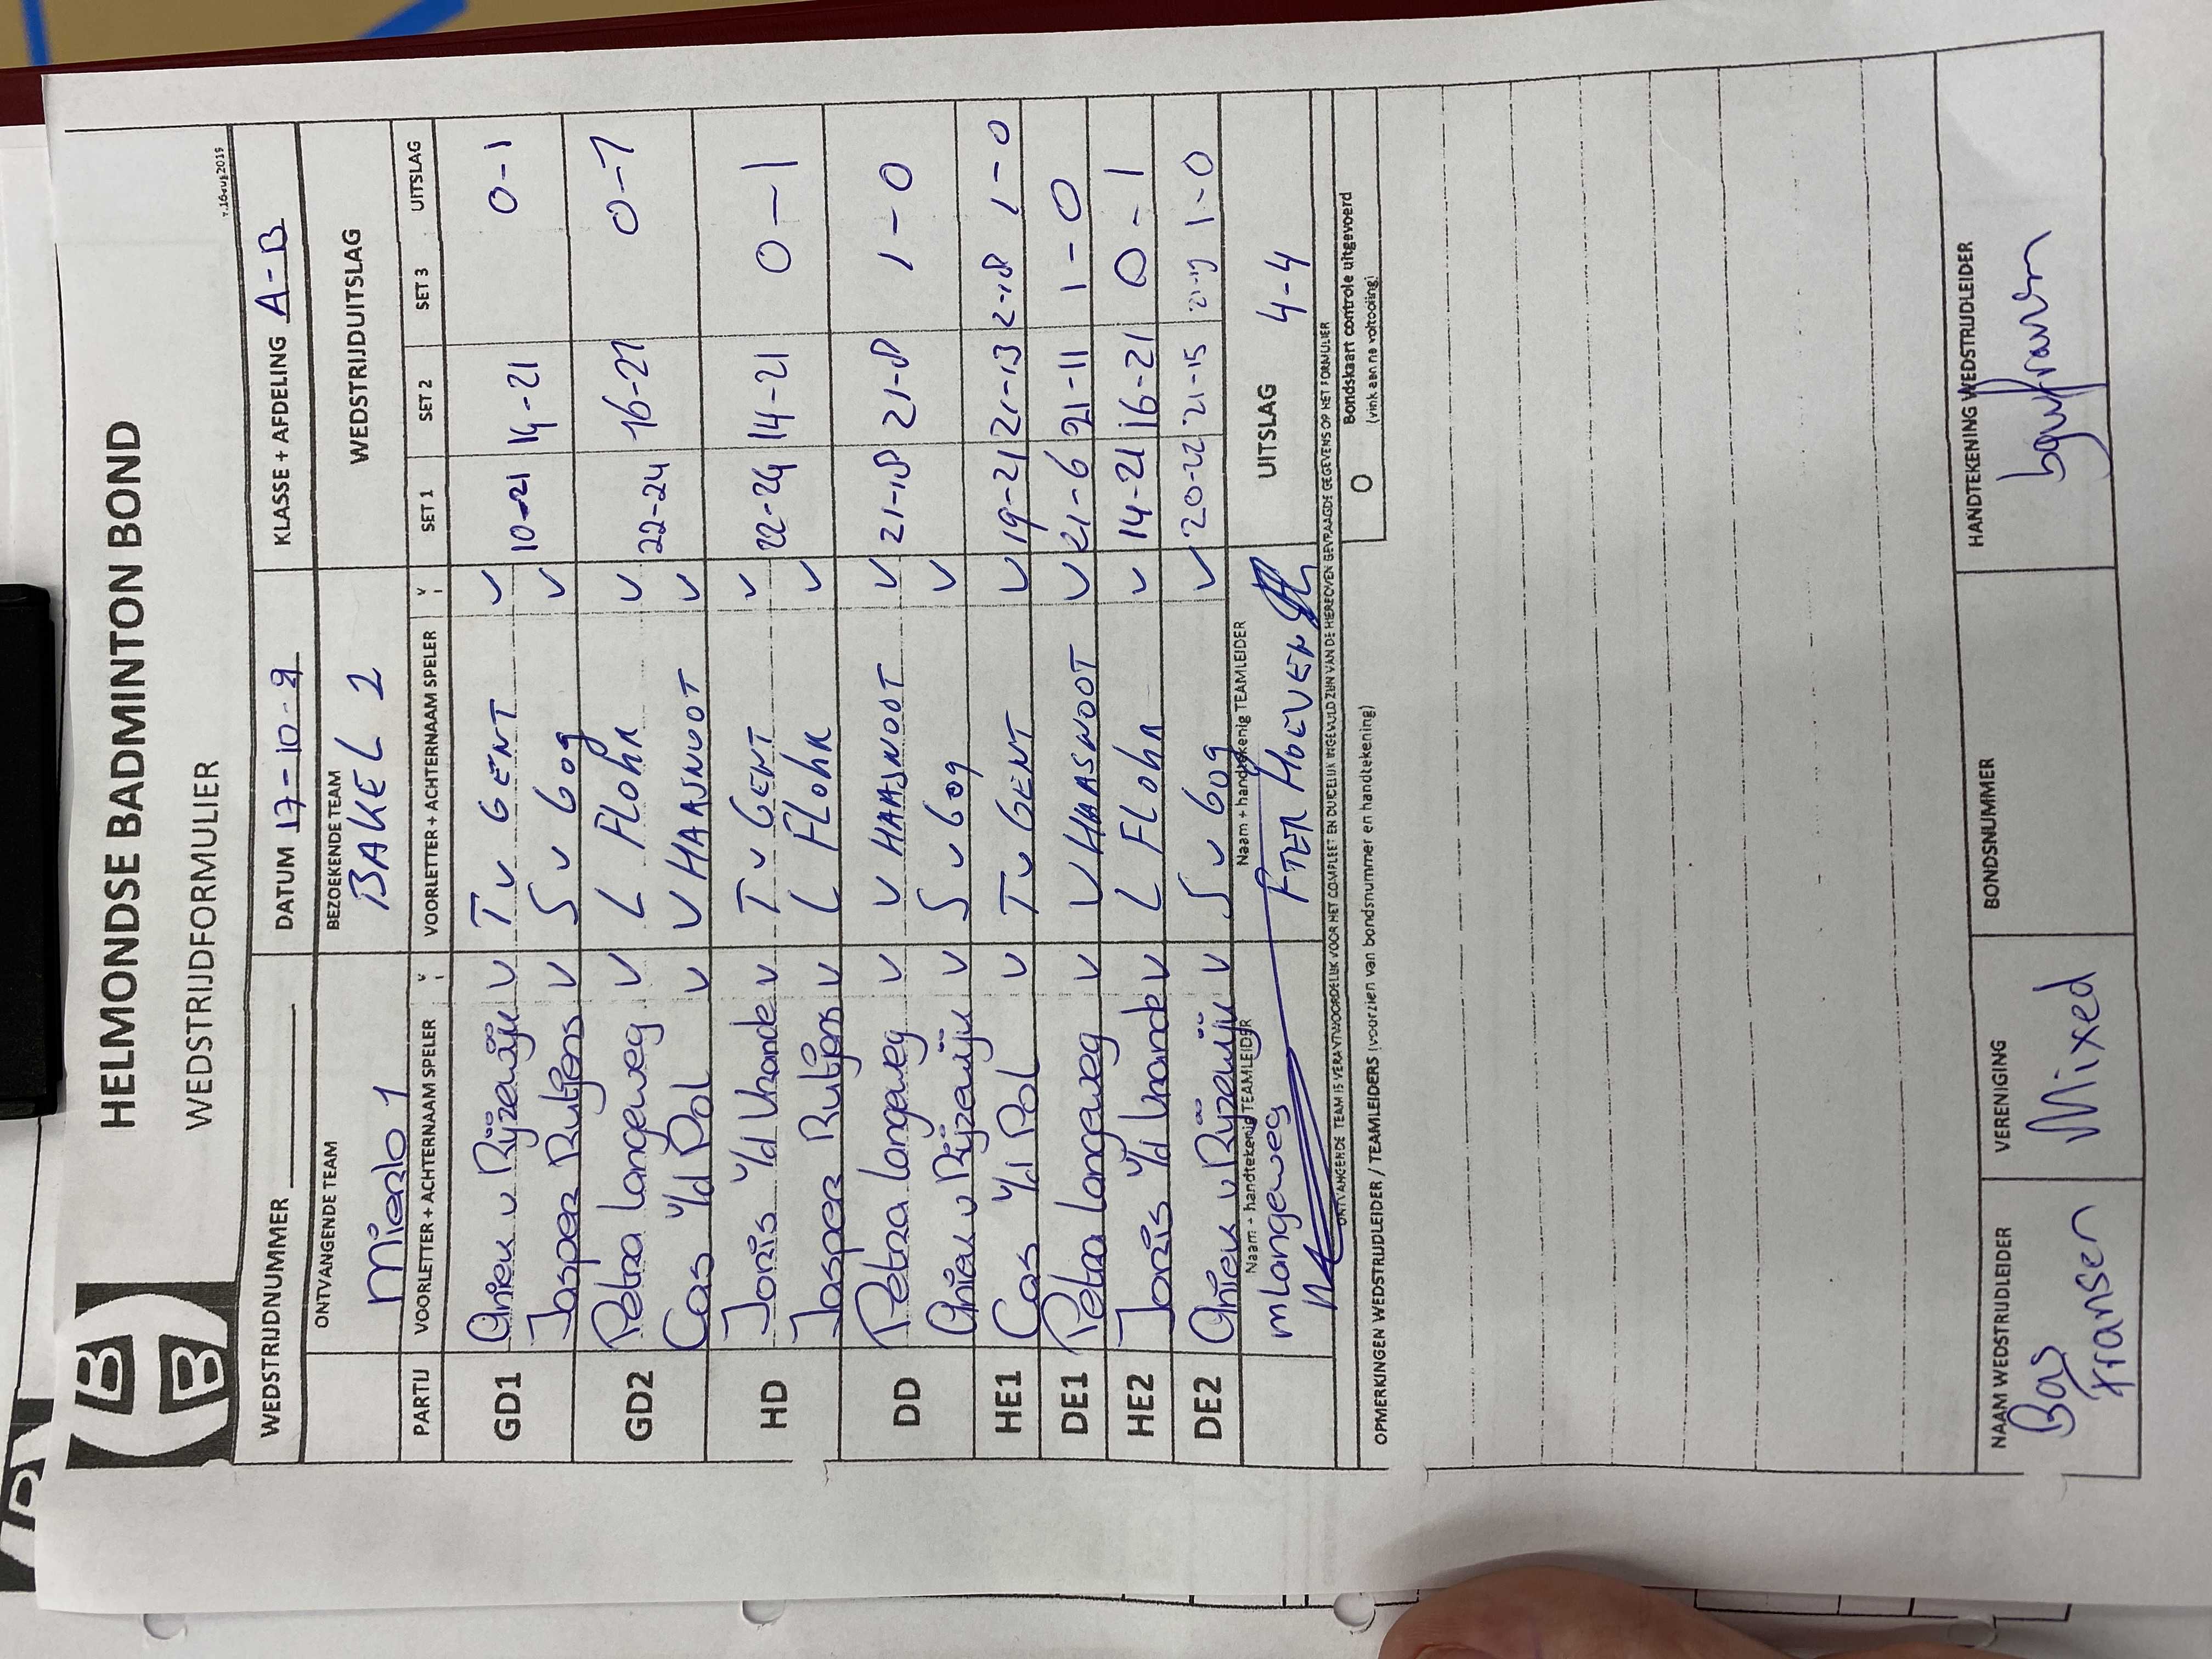 HELMONDSE BADMINTON BOND
WEDSTRIJDFORMULIER
v.16aug2019
WEDSTRIJDNUMMER
DATUM 17-10-9
KLASSE + AFDELING A-B
ONTVANGENDE TEAM
Mierlo 1
BEZOEKENDE TEAM
BAKEL 2
WEDSTRIJDUITSLAG
PARTIJ VOORLETTER + ACHTERNAAM SPELER V VOORLETTER + ACHTERNAAM SPELER V SET 1 SET 2 SET 3 UITSLAG
GD1 Aniek v Rijzewijk V T v GENT V 10-21 14-21 0-1
Jasper Rutjens V S v Gog V
GD2 Petra Langeweg V L Flohr V 22-24 16-21 0-1
Cas v/d Pol V V HAASNOOT V
HD Joris v/d Vrande V T v GENT V 22-24 14-21 0-1
Jasper Rutjens V L Flohr V
DD Petra Langeweg V V HAASNOOT V 21-18 21-8 1-0
Aniek v Rijzewijk V S v Gog V
HE1 Cas v/d Pol V T v GENT V 19-21 21-13 21-18 1-0
DE1 Petra Langeweg V V HAASNOOT V 21-6 21-11 1-0
HE2 Joris v/d Vrande V L Flohr V 14-21 16-21 0-1
DE2 Aniek v Rijzewijk V S v Gog V 20-22 21-15 21-19 1-0
Naam + handtekenig TEAMLEIDER
m Langeweg
Naam + handtekenig TEAMLEIDER
F TER HOEVEN
UITSLAG 4-4
ONTVANGENDE TEAM IS VERANTWOORDELIJK VOOR HET COMPLEET EN DUIDELIJK INGEVULD ZIJN VAN DE HIERBOVEN GEVRAAGDE GEGEVENS OP HET FORMULIER
OPMERKINGEN WEDSTRIJDLEIDER / TEAMLEIDERS (voorzien van bondsnummer en handtekening)
O Bondskaart controle uitgevoerd
(vink aan na voltooiing)
NAAM WEDSTRIJDLEIDER
Bas
Fransen
VERENIGING
Mixed
BONDSNUMMER
HANDTEKENING WEDSTRIJDLEIDER